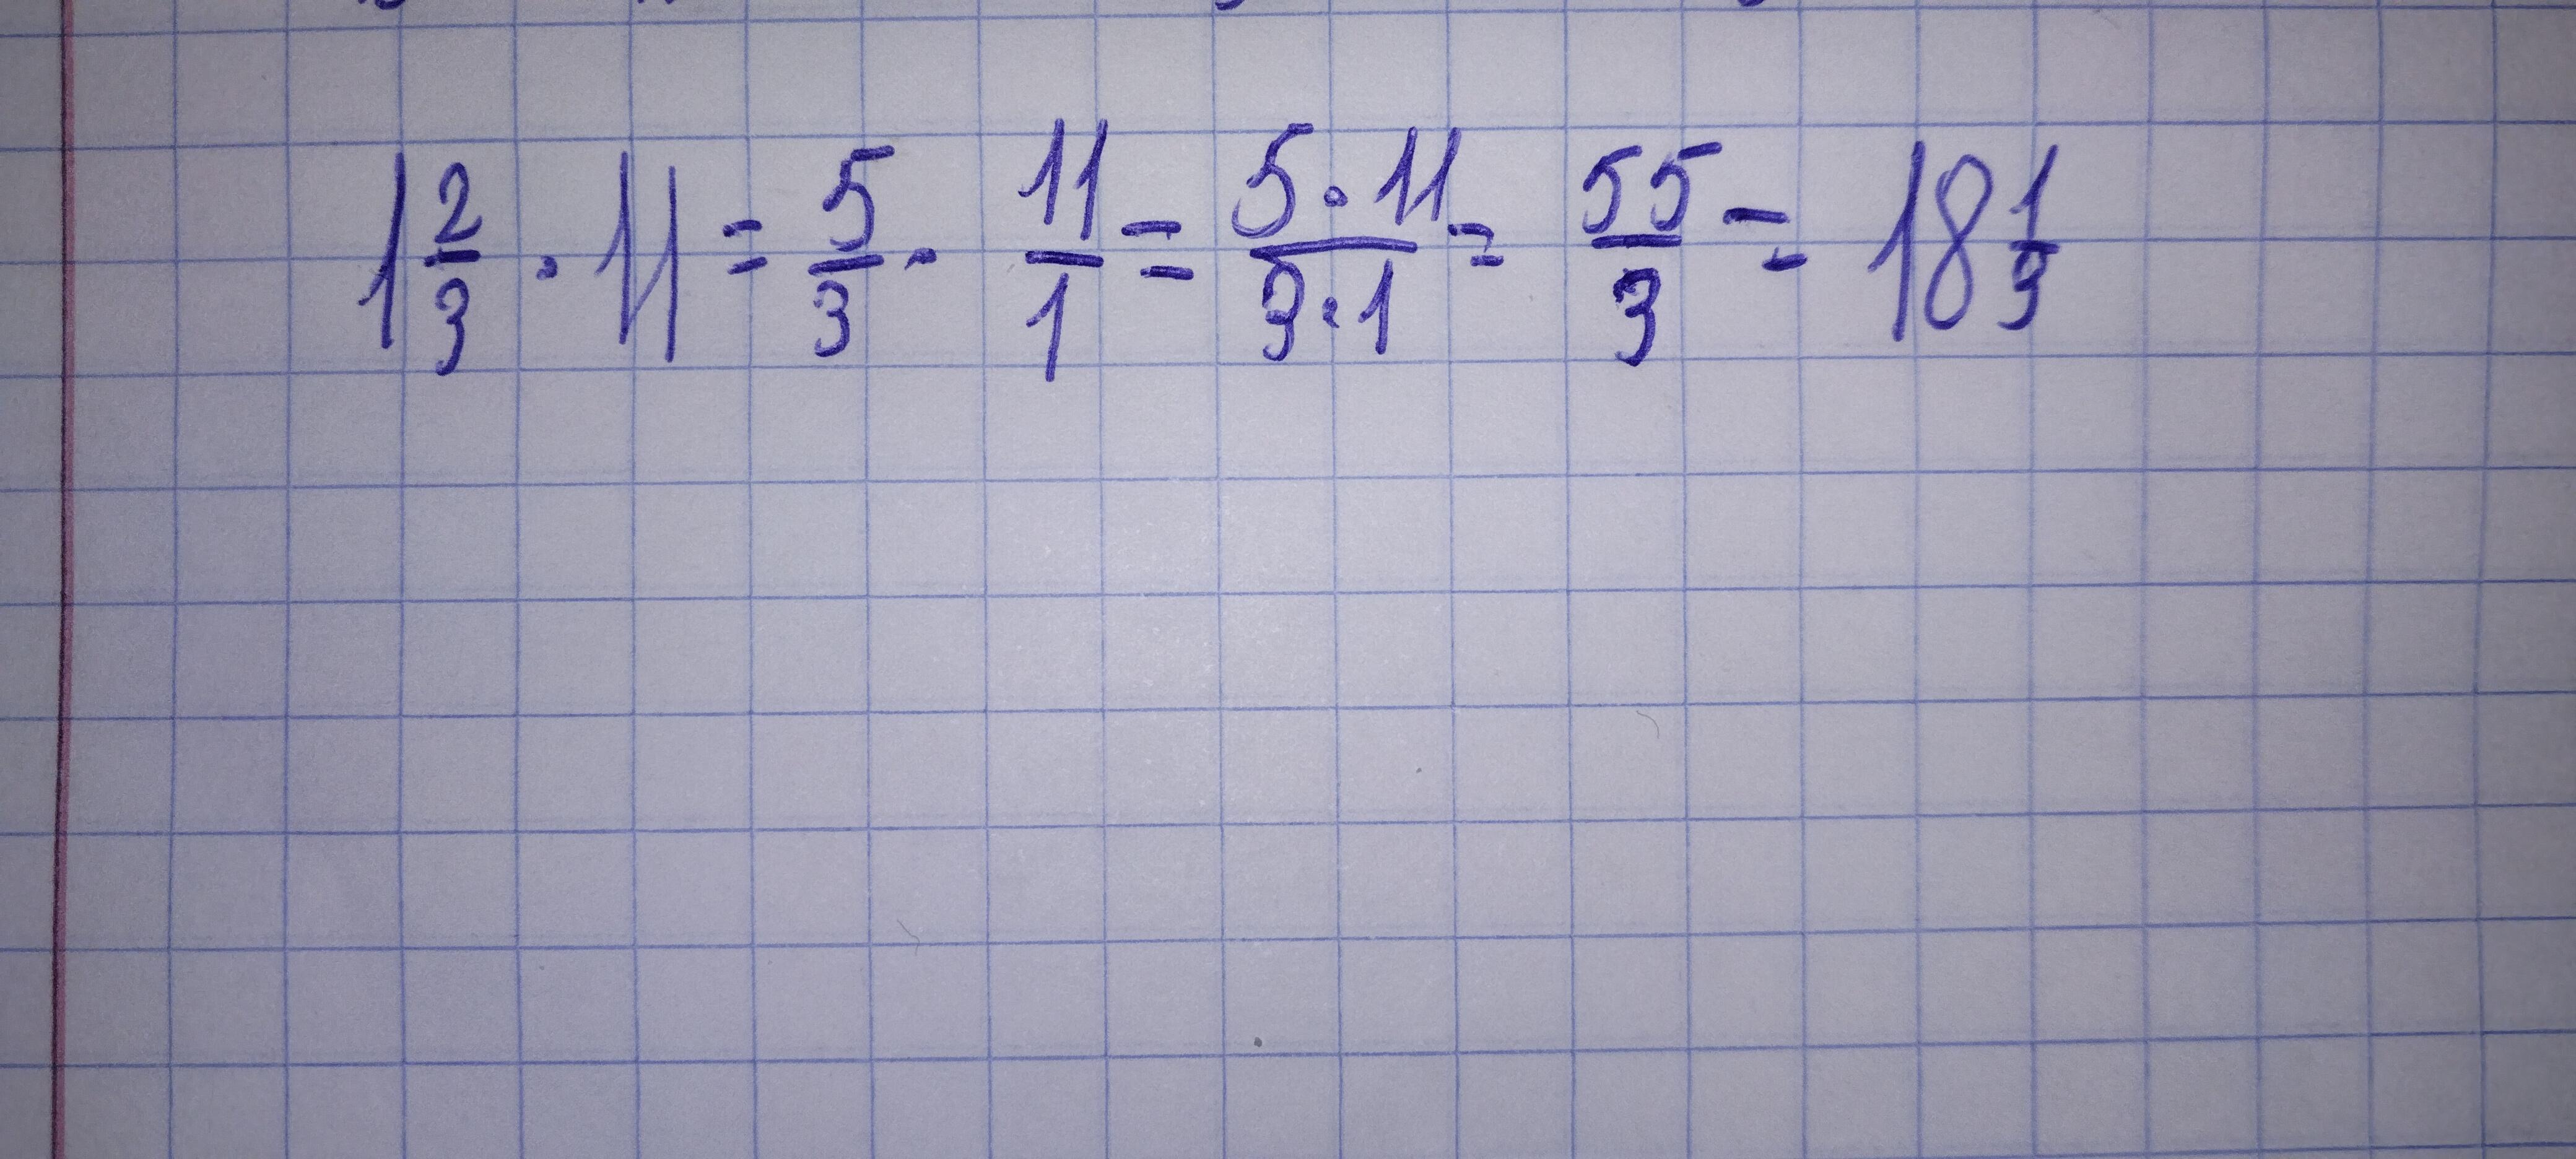 1 2/3 · 11 = 5/3 · 11/1 = 5·11/3·1 = 55/3 = 18 1/3